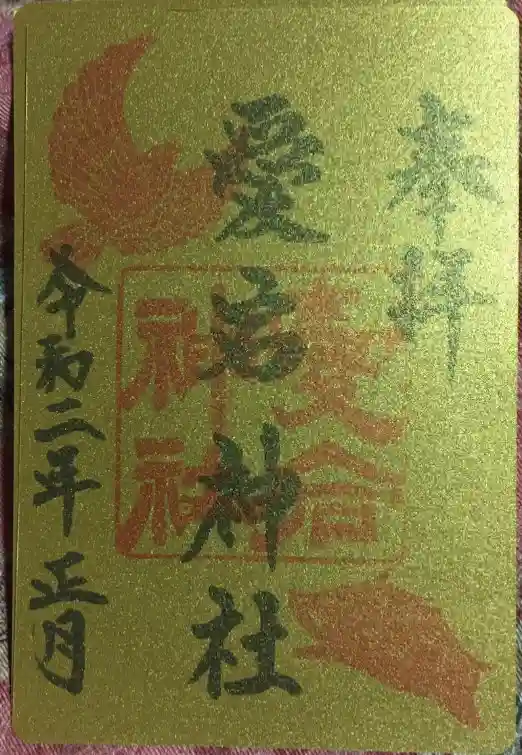 奉拝
愛宕神社
令和二年正月
愛宕
神社